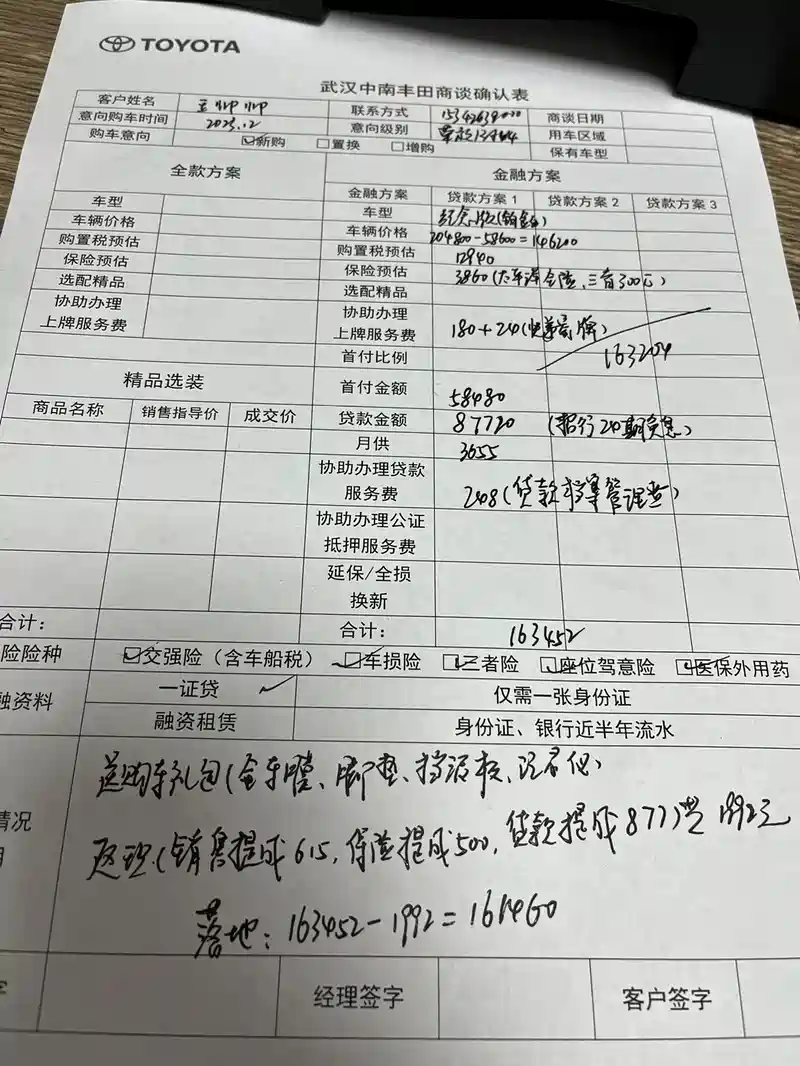 TOYOTA
武汉中南丰田商谈确认表
客户姓名 联系方式 商谈日期
意向购车时间 2023.12 意向级别 用车区域
购车意向 ☑新购 □置换 □增购 保有车型
全款方案 金融方案
金融方案 贷款方案1 贷款方案2 贷款方案3
车型 车型 (铂金)
车辆价格 车辆价格 204800-58600=146200
购置税预估 购置税预估 12940
保险预估 保险预估 3860(
选配精品 选配精品
协助办理
上牌服务费
协助办理
上牌服务费 180+24( 牌) 163204
首付比例
精品选装
首付金额 58480
商品名称 销售指导价 成交价
贷款金额 87720 (招行24期免息)
月供 3655
协助办理贷款
服务费 248(贷款档案管理费)
协助办理公证
抵押服务费
延保/全损
换新
合计: 合计: 163452
险险种 ☑交强险(含车船税) ☑车损险 ☑三者险 ☑座位驾意险 ☑医保外用药
融资料 一证贷 ✓ 仅需一张身份证
融资租赁 身份证、银行近半年流水
送购车礼包(全车膜、脚垫、挡泥板、
情况
返现(销售提成615,保险提成500,贷款提成877)共1992元
落地:163452-1992=161460
字 经理签字 客户签字